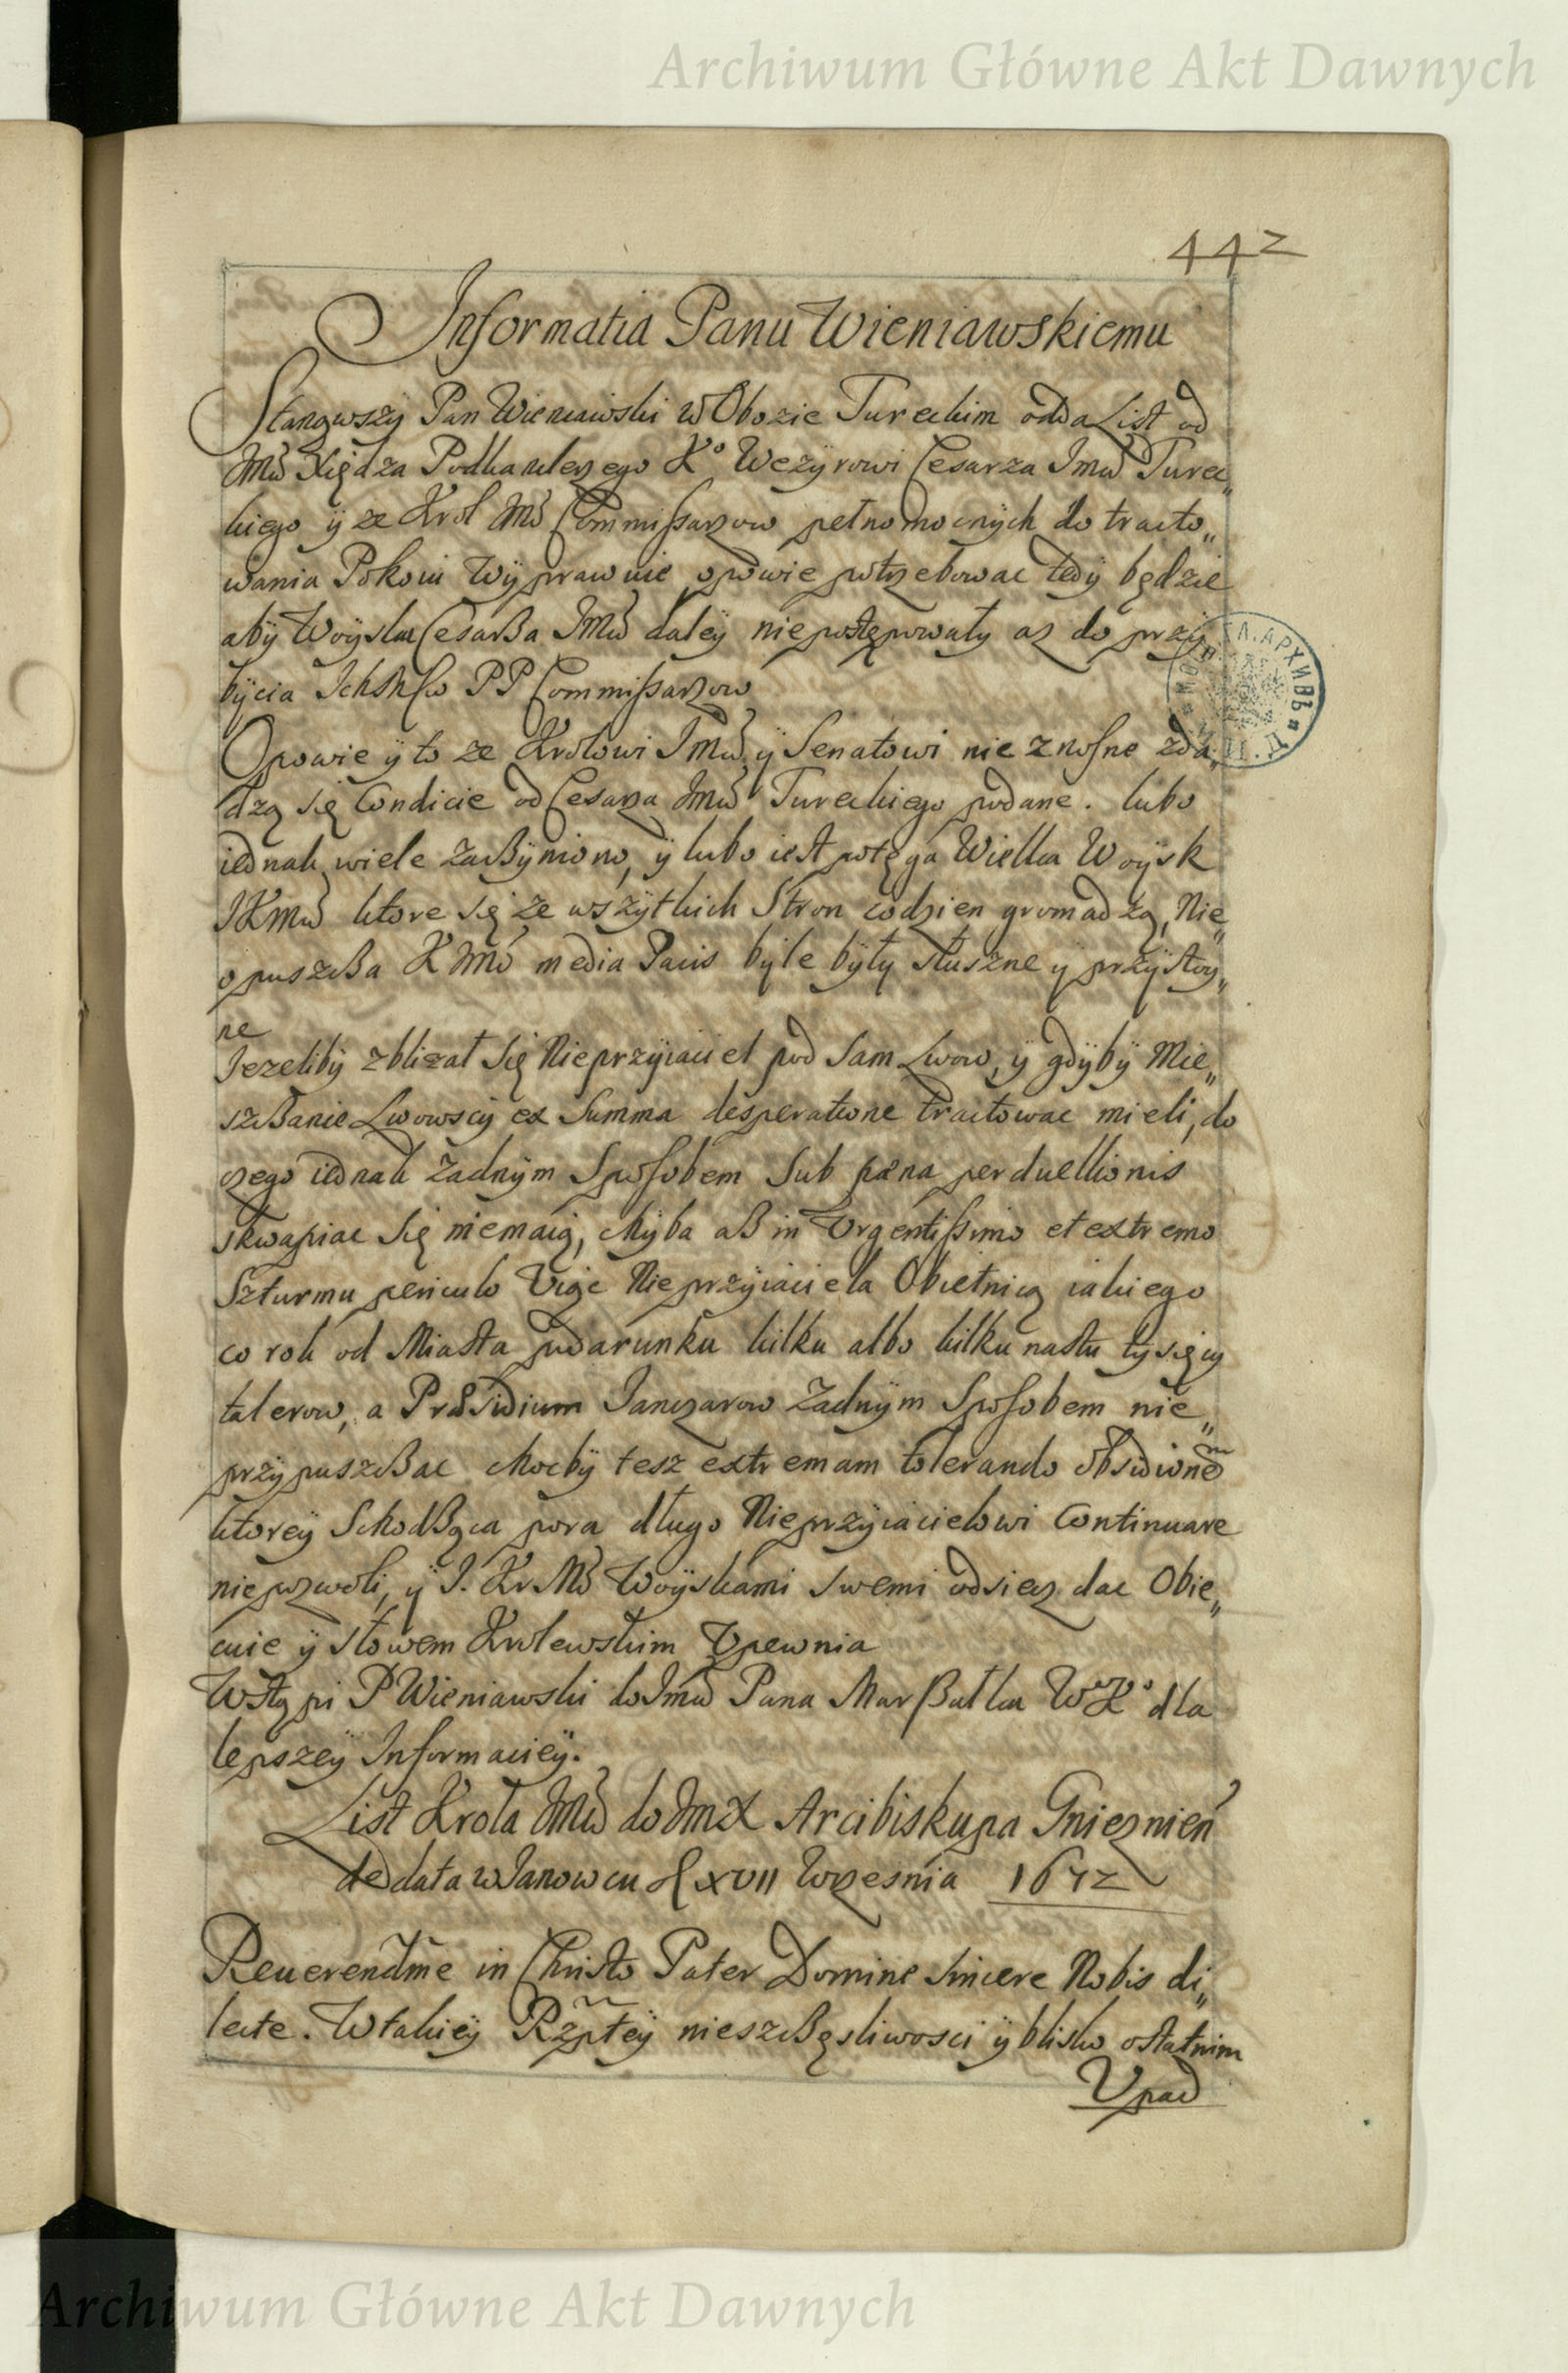 Archiwum Główne Akt Dawnych
442
Informatia Panu Wieniawskiemu
Stanąwszÿ Pan Wieniawski w Obozie Tureckim odda List od
JMći Xiędza Podkanclerzego Kº Wezÿrowi Cesarza Jmći Turec„
kiego ÿ ze Krol JMć Commißarzow pełnomocnÿch do tracto„
wania Pokoiu wÿprawuie opowie potrzebowac tedÿ będzie
abÿ Woÿska Cesarßa JMći daleÿ niepostępowałÿ asz do przÿ„
bÿcia Ichmśćiow PP Commißarzow
Opowie ÿ to ze Krolowi Jmći ÿ Senatowi nie znosne zda„
dzą się Condicie od Cesarza Jmći Tureckiego podane. lubo
iednak wiele zacßÿniono, ÿ lubo iest potęga Wielka Woÿsk
JKMći ktore się ze wszÿtkich Stron codzien gromadzą, Nie„
opuszcßa K JMć media Pacis bÿle bÿłÿ słuszne ÿ przÿstoÿ„
ne
Iezelibÿ zblizał się Nieprzÿiaciel pod sam Lwow, ÿ gdÿbÿ Mie„
szcßanie Lwowscÿ ex Summa desperatione tractowac mieli, do
czego iednak zadnÿm Sposobem sub pæna perduellionis
skwapiac się niemaią, chÿba aß in Vrgentißimo et extremo
Szturmu periculo Viąc Nieprzÿiaciela Obietnicą iakiego
co rok od Miasta podarunku kilku albo kilkunastu tÿsięcÿ
talerow, a Præsidium Janczarow zadnÿm Sposobem nie„
przÿpuszcßac chocbÿ tesz extremam tolerando obsidionem
ktoreÿ Schodßąca pora długo Nieprzÿiacielowi Continuare
niepozwoli, ÿ J. Kr Mć Woÿskami swemi odsiecz dac Obie„
cuie ÿ słowem Krolewskim Vpewnia
Wstąpi P Wieniawski do Jmći Pana Marßałka WKº dla
lepszeÿ Informacieÿ.
List Krola JMći do JmX Arcibiskupa Gnieznień
de data w Janowcu d xvii Wrzesnia 1672
Reuerendme in Christo Pater Domine sincere Nobis di„
lecte. W takieÿ Rzpteÿ nieszcßęsliwosci ÿ blisko ostatnim
Vpad
Archiwum Główne Akt Dawnych